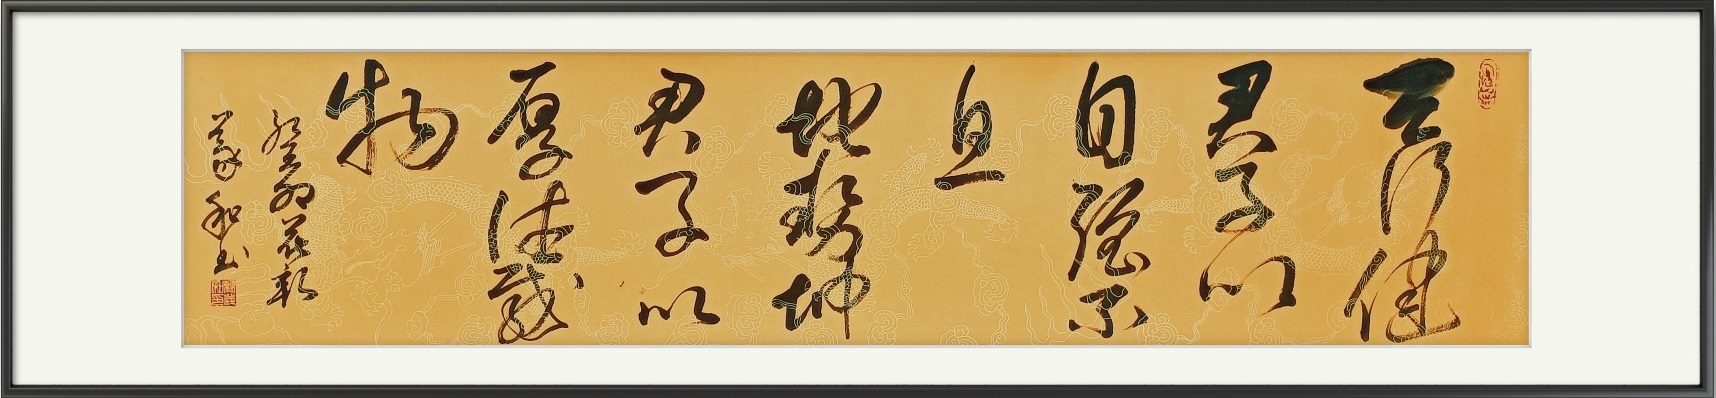 天行健
君子以
自强不
息
地势坤
君子以
厚德载
物
癸卯